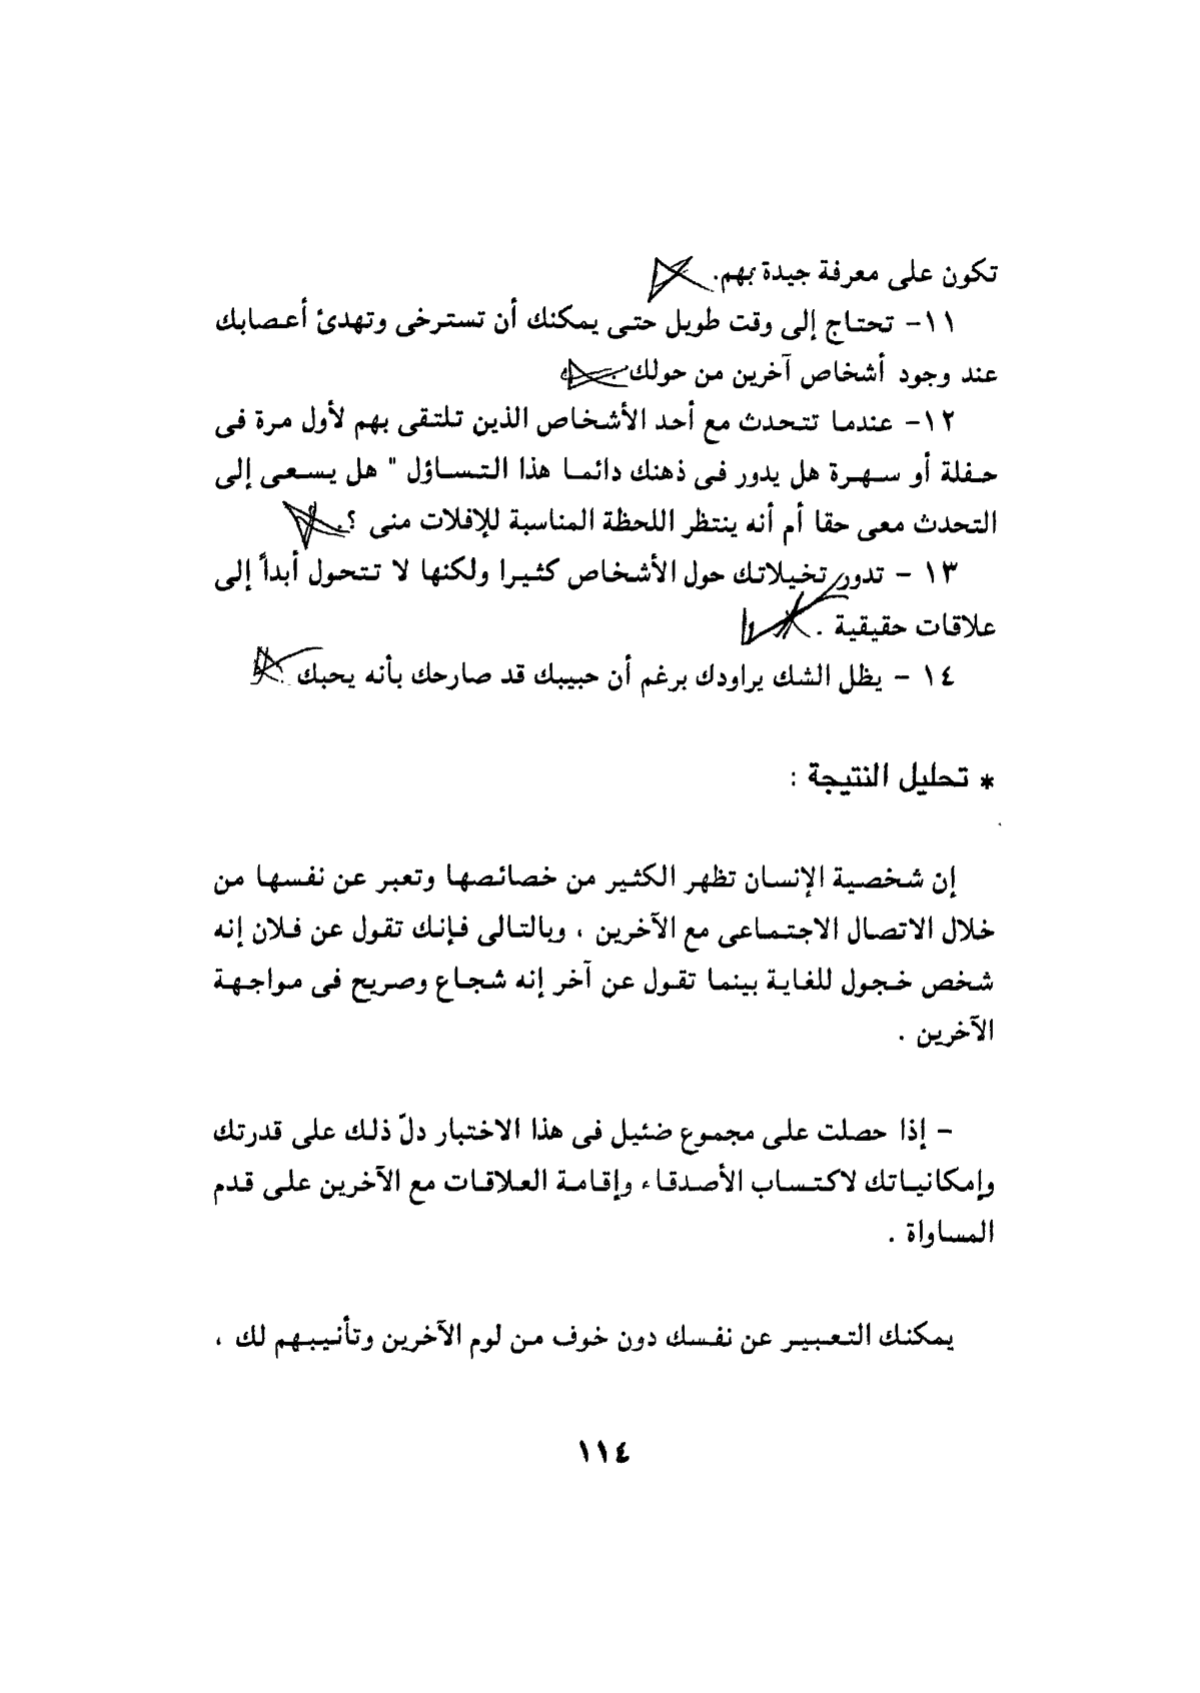 تكون على معرفة جيدة بهم.
١١- تحتاج إلى وقت طويل حتى يمكنك أن تسترخى وتهدئ أعصابك
عند وجود أشخاص آخرين من حولك.
١٢- عندما تتحدث مع أحد الأشخاص الذين تلتقى بهم لأول مرة فى
حفلة أو سهرة هل يدور فى ذهنك دائما هذا التساؤل " هل يسعى إلى
التحدث معى حقا أم أنه ينتظر اللحظة المناسبة للإفلات منى ؟.
١٣ - تدور تخيلاتك حول الأشخاص كثيرا ولكنها لا تتحول أبداً إلى
علاقات حقيقية .
١٤ - يظل الشك يراودك برغم أن حبيبك قد صارحك بأنه يحبك .
* تحليل النتيجة :
إن شخصية الإنسان تظهر الكثير من خصائصها وتعبر عن نفسها من
خلال الاتصال الاجتماعى مع الآخرين ، وبالتالى فإنك تقول عن فلان إنه
شخص خجول للغاية بينما تقول عن آخر إنه شجاع وصريح فى مواجهة
الآخرين .
- إذا حصلت على مجموع ضئيل فى هذا الاختبار دلّ ذلك على قدرتك
وإمكانياتك لاكتساب الأصدقاء وإقامة العلاقات مع الآخرين على قدم
المساواة .
يمكنك التعبير عن نفسك دون خوف من لوم الآخرين وتأنيبهم لك ،
١١٤